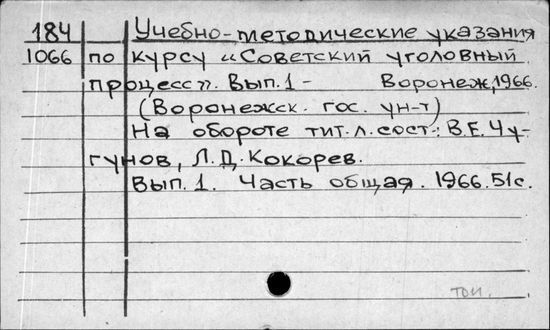 184 Учебно-методические указания
1066 по курсу "Советский уголовный
процесс". Вып.1 - Воронеж, 1966.
(Воронежск. гос. ун-т)
На обороте тит.л.сост.: В.Е.Чу-
гунов, Л.Д.Кокорев.
Вып.1. Часть общая. 1966.51с.